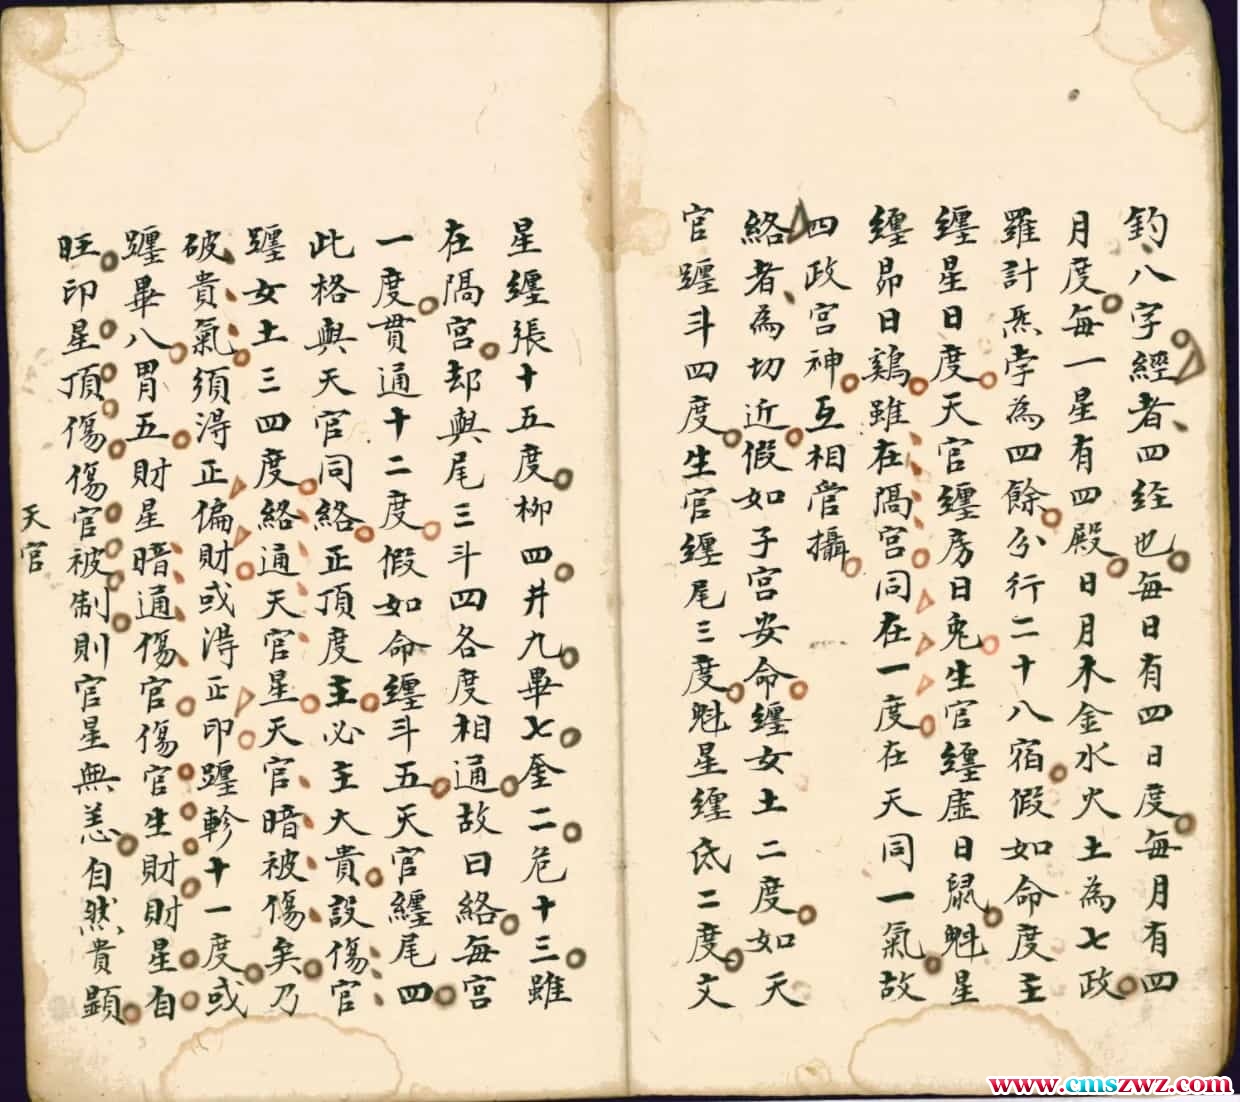 鈞八字經者四経也每日有四日度每月有四
月度每一星有四殿日月木金水火土為七政
羅計炁孛為四餘分行二十八宿假如命度主
纒星日度天官纒房日兔生官纒虛日鼠魁星
纒昴日鷄雖在隔宮同在一度在天同一氣故
四政宮神互相管攝
絡者為切近假如子宮安命纒女土二度如天
官躔斗四度生官纒尾三度魁星纒氐二度文
星纒張十五度柳四井九畢七奎二危十三雖
在隔宮却與尾三斗四各度相通故曰絡每宮
一度貫通十二度假如命纒斗五天官纒尾四
此格與天官同絡正頂度主必主大貴設傷官
躔女土三四度絡通天官星天官暗被傷矣乃
破貴氣須淂正偏財或淂正印躔軫十一度或
躔畢八胃五財星暗通傷官傷官生財財星自
旺印星頂傷傷官被制則官星無恙自然貴顕
天官
www.cmszwz.com